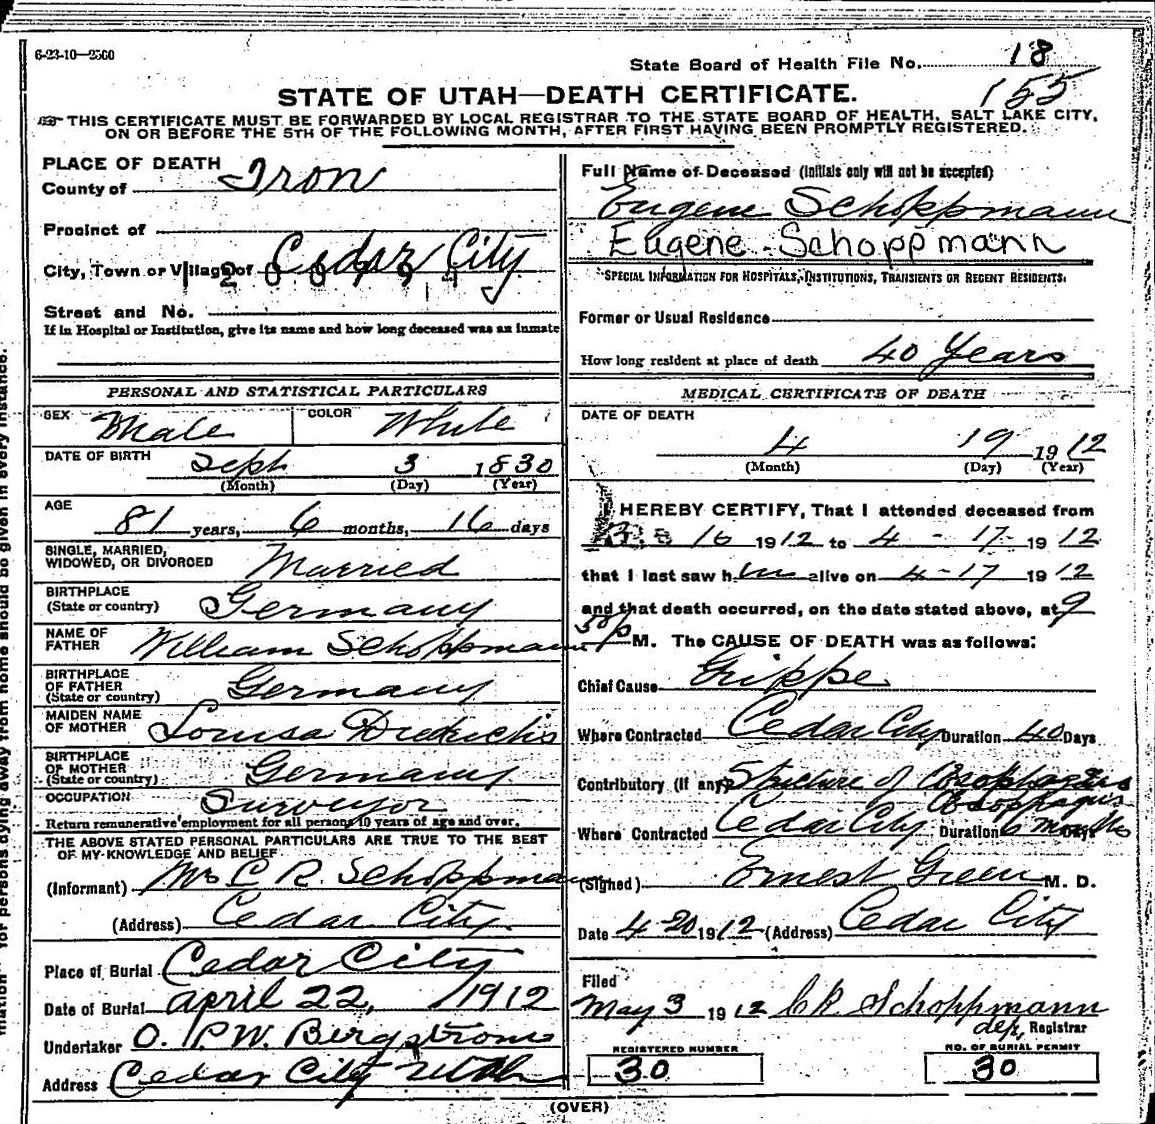 6-23-10—2560
State Board of Health File No. 18
155
STATE OF UTAH—DEATH CERTIFICATE.
THIS CERTIFICATE MUST BE FORWARDED BY LOCAL REGISTRAR TO THE STATE BOARD OF HEALTH, SALT LAKE CITY,
ON OR BEFORE THE 5TH OF THE FOLLOWING MONTH, AFTER FIRST HAVING BEEN PROMPTLY REGISTERED.
PLACE OF DEATH
County of Iron
Precinct of
City, Town or Village of Cedar City
Street and No.
If in Hospital or Institution, give its name and how long deceased was an inmate
PERSONAL AND STATISTICAL PARTICULARS
SEX Male COLOR White
DATE OF BIRTH Sept 3 1830
(Month) (Day) (Year)
AGE 81 years, 6 months, 16 days
SINGLE, MARRIED,
WIDOWED, OR DIVORCED Married
BIRTHPLACE
(State or country) Germany
NAME OF
FATHER William Schoppmann
BIRTHPLACE
OF FATHER
(State or country) Germany
MAIDEN NAME
OF MOTHER Louisa
BIRTHPLACE
OF MOTHER
(State or country) Germany
OCCUPATION Surveyor
Return remunerative employment for all persons 10 years of age and over.
THE ABOVE STATED PERSONAL PARTICULARS ARE TRUE TO THE BEST
OF MY KNOWLEDGE AND BELIEF
(Informant) Mrs C R. Schoppmann
(Address) Cedar City.
Place of Burial Cedar City
Date of Burial April 22, 1912
Undertaker O. P.W. Bergstrom
Address Cedar City Utah
Full Name of Deceased (Initials only will not be accepted)
Eugene Schoppmann
Eugene Schoppmann
SPECIAL INFORMATION FOR HOSPITALS, INSTITUTIONS, TRANSIENTS OR RECENT RESIDENTS.
Former or Usual Residence
How long resident at place of death 40 Years
MEDICAL CERTIFICATE OF DEATH
DATE OF DEATH
4 19 1912
(Month) (Day) (Year)
I HEREBY CERTIFY, That I attended deceased from
16 1912 to 4 - 17 - 1912
that I last saw him alive on 4-17 1912
and that death occurred, on the date stated above, at 9
50 p M. The CAUSE OF DEATH was as follows:
Chief Cause Grippe
Where Contracted Cedar City Duration 40 Days
Contributory (if any) Stricture of Oesophagus
Oesophagus
Where Contracted Cedar City Duration 6 months
(Signed) Ernest Green M. D.
Date 4-20 1912 (Address) Cedar City
Filed
May 3 1912 C R Schoppmann
dep, Registrar
REGISTERED NUMBER
30
NO. OF BURIAL PERMIT
30
(OVER)
for persons dying away from home should be given in every instance.